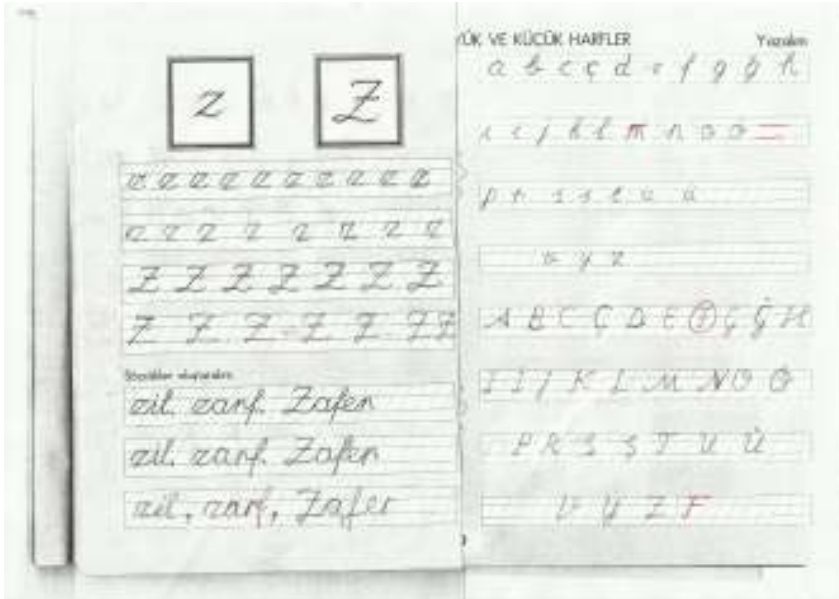 z Z
z z z z z z z z z z
z z z z z z z z
Z Z Z Z Z Z Z
Z Z Z Z Z Z Z
Sözcükler oluşturalım
zil, zarf, Zafer
zil, zarf, Zafer
zil, zarf, Zafer
ÜK VE KÜÇÜK HARFLER Yazalım
a b c ç d e f g ğ h
ı i j k l m n o ö
p r s ş t u ü
v y z
A B C Ç D E F G Ğ H
I İ J K L M N O Ö
P R S Ş T U Ü
V Y Z F